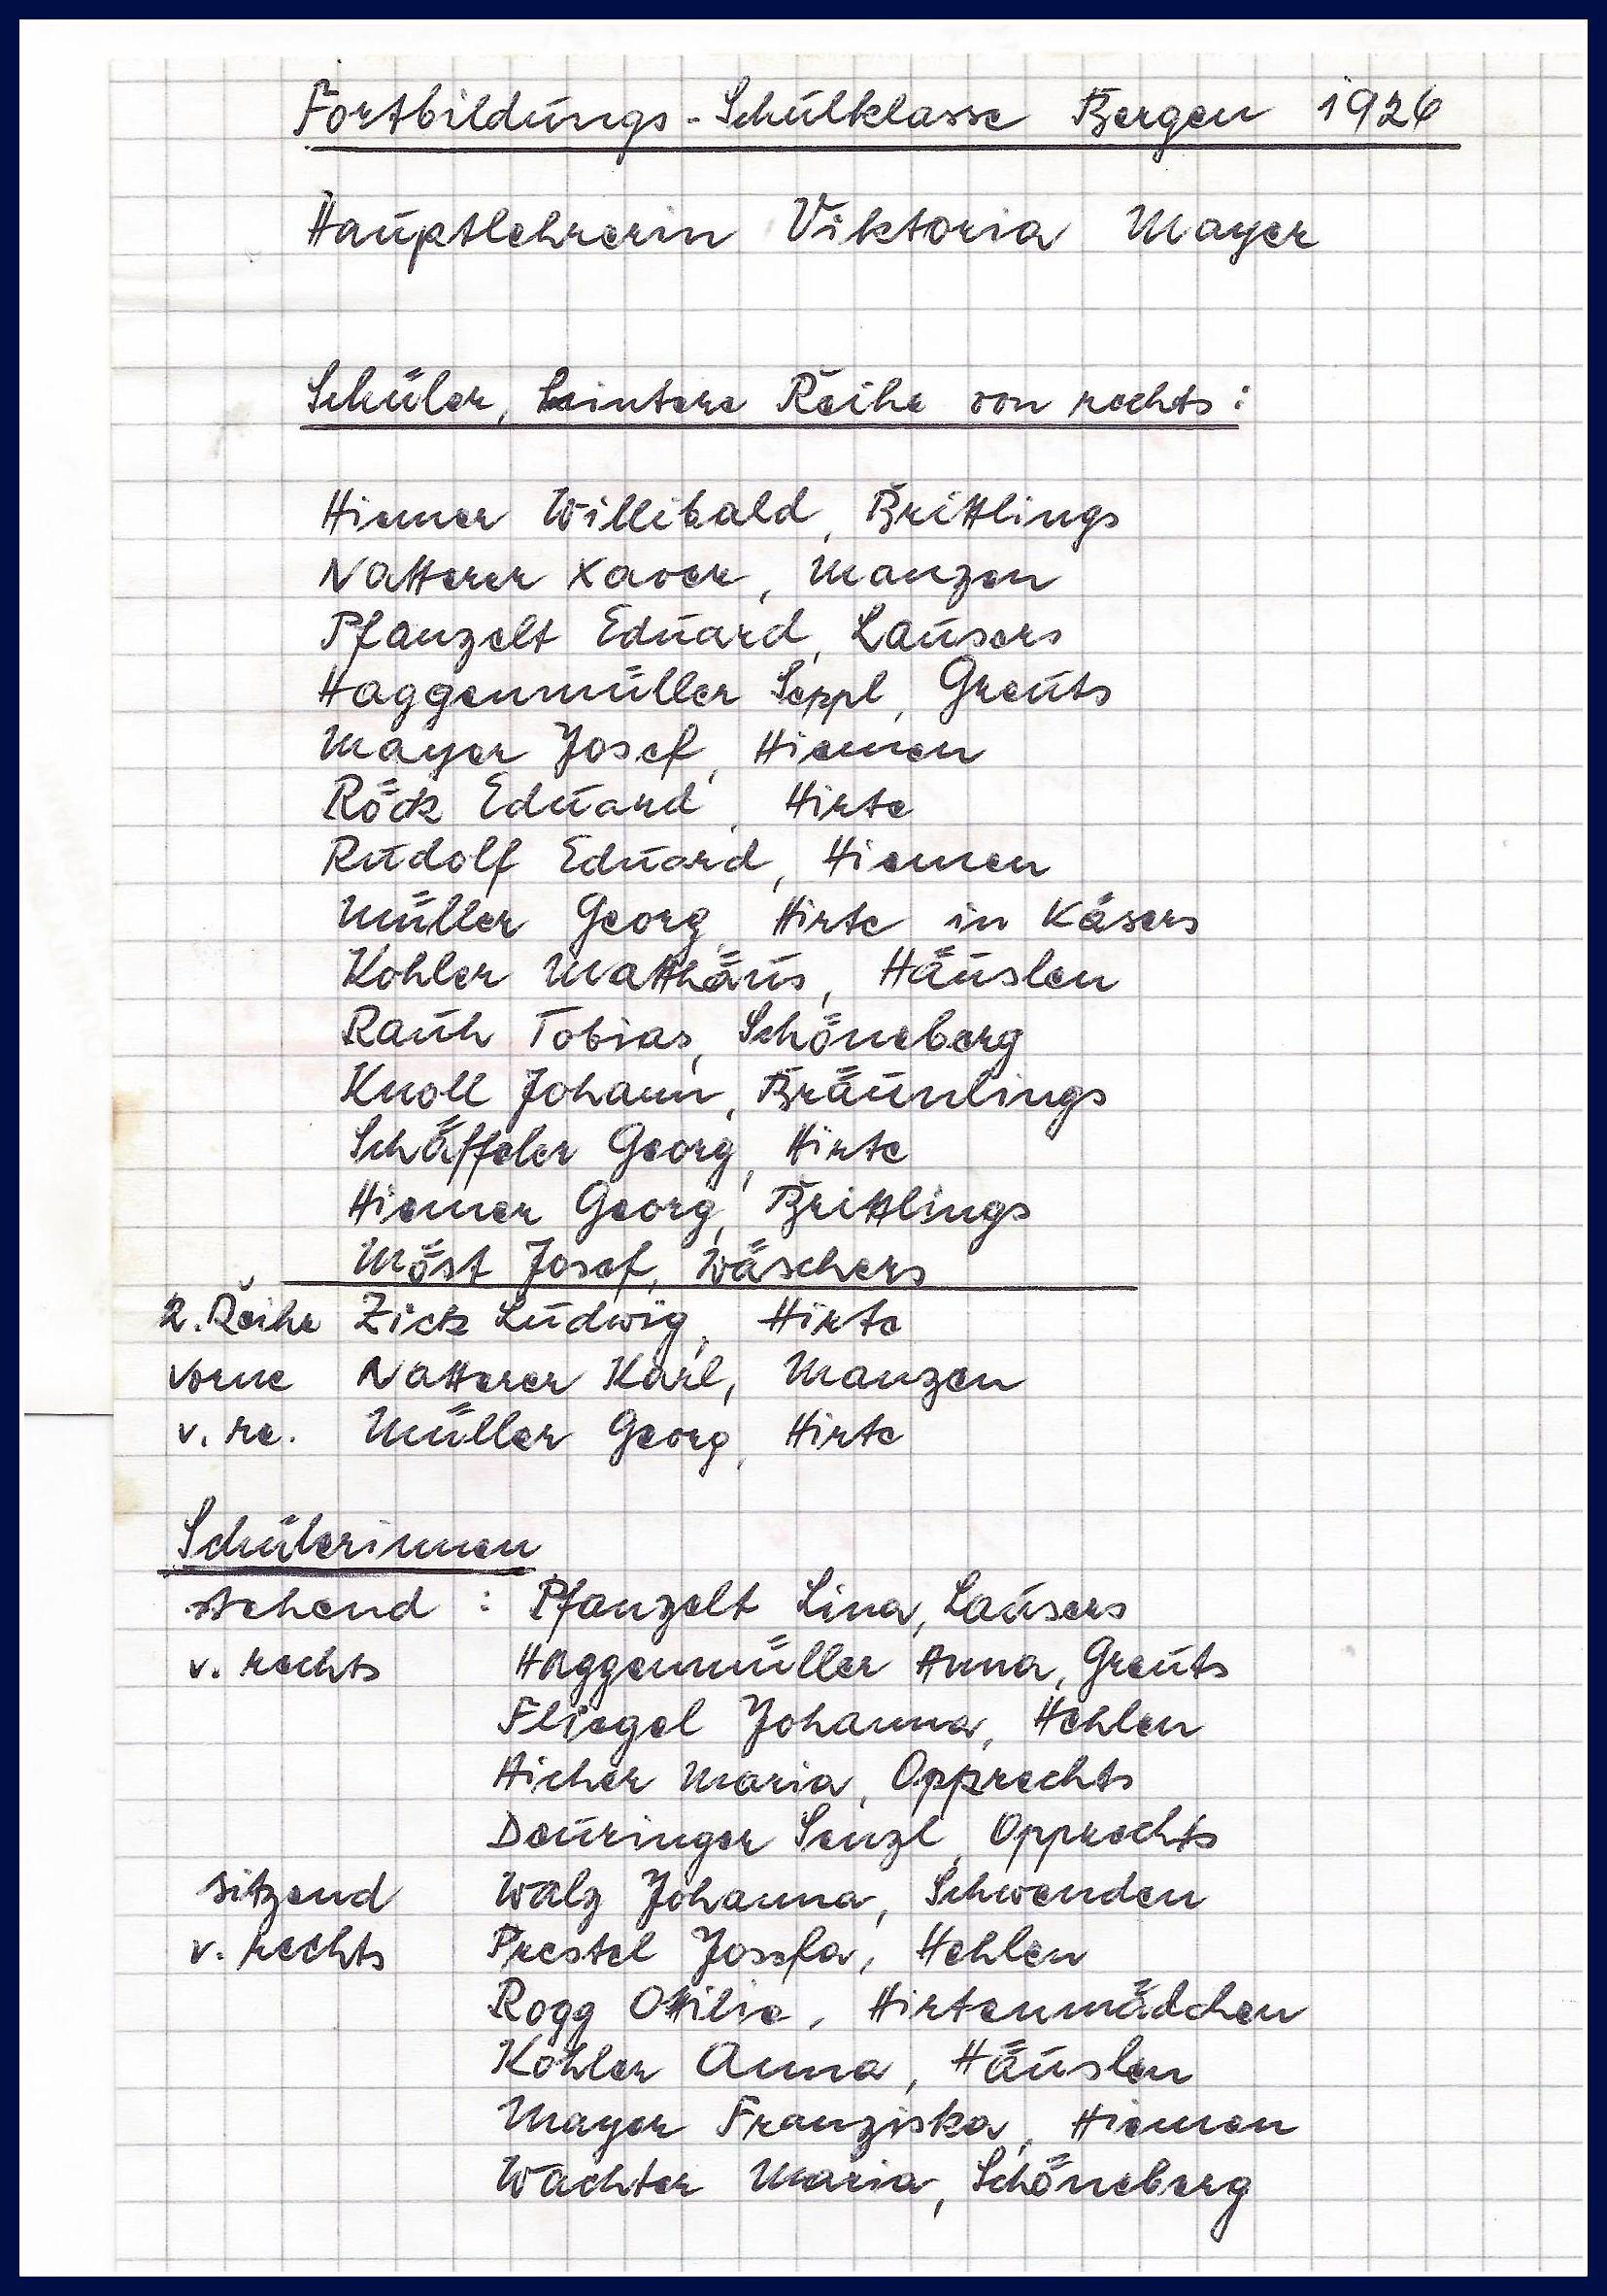 Fortbildungs-Schulklasse Bergen 1926
Hauptlehrerin Viktoria Mayer
Schüler, hintere Reihe von rechts:
Hiemer Willibald, Brittlings
Natterer Xaver, Manzen
Pfanzelt Eduard, Lausers
Haggenmüller Seppl, Greuts
Mayer Josef, Hiemen
Röck Eduard, Hirte
Rudolf Eduard, Hiemen
Müller Georg, Hirte in Käsers
Kohler Matthäus, Häuslen
Rauh Tobias, Schöneberg
Knoll Johann, Bräunlings
Schäffeler Georg, Hirte
Hiemer Georg, Brittlings
Möst Josef, Wäschers
2. Reihe Zick Ludwig, Hirte
vorne Natterer Karl, Manzen
v. re. Müller Georg, Hirte
Schülerinnen
stehend : Pfanzelt Lina, Lausers
v. rechts Haggenmüller Anna, Greuts
Fliegel Johanna, Hehlen
Aicher Maria, Opprechts
Deuringer Senzl, Opprechts
sitzend Walz Johanna, Schwenden
v. rechts Prestel Josefa, Hehlen
Rogg Ottilie, Hirtenmädchen
Kohler Anna, Häuslen
Mayer Franziska, Hiemen
Wachter Maria, Schöneberg